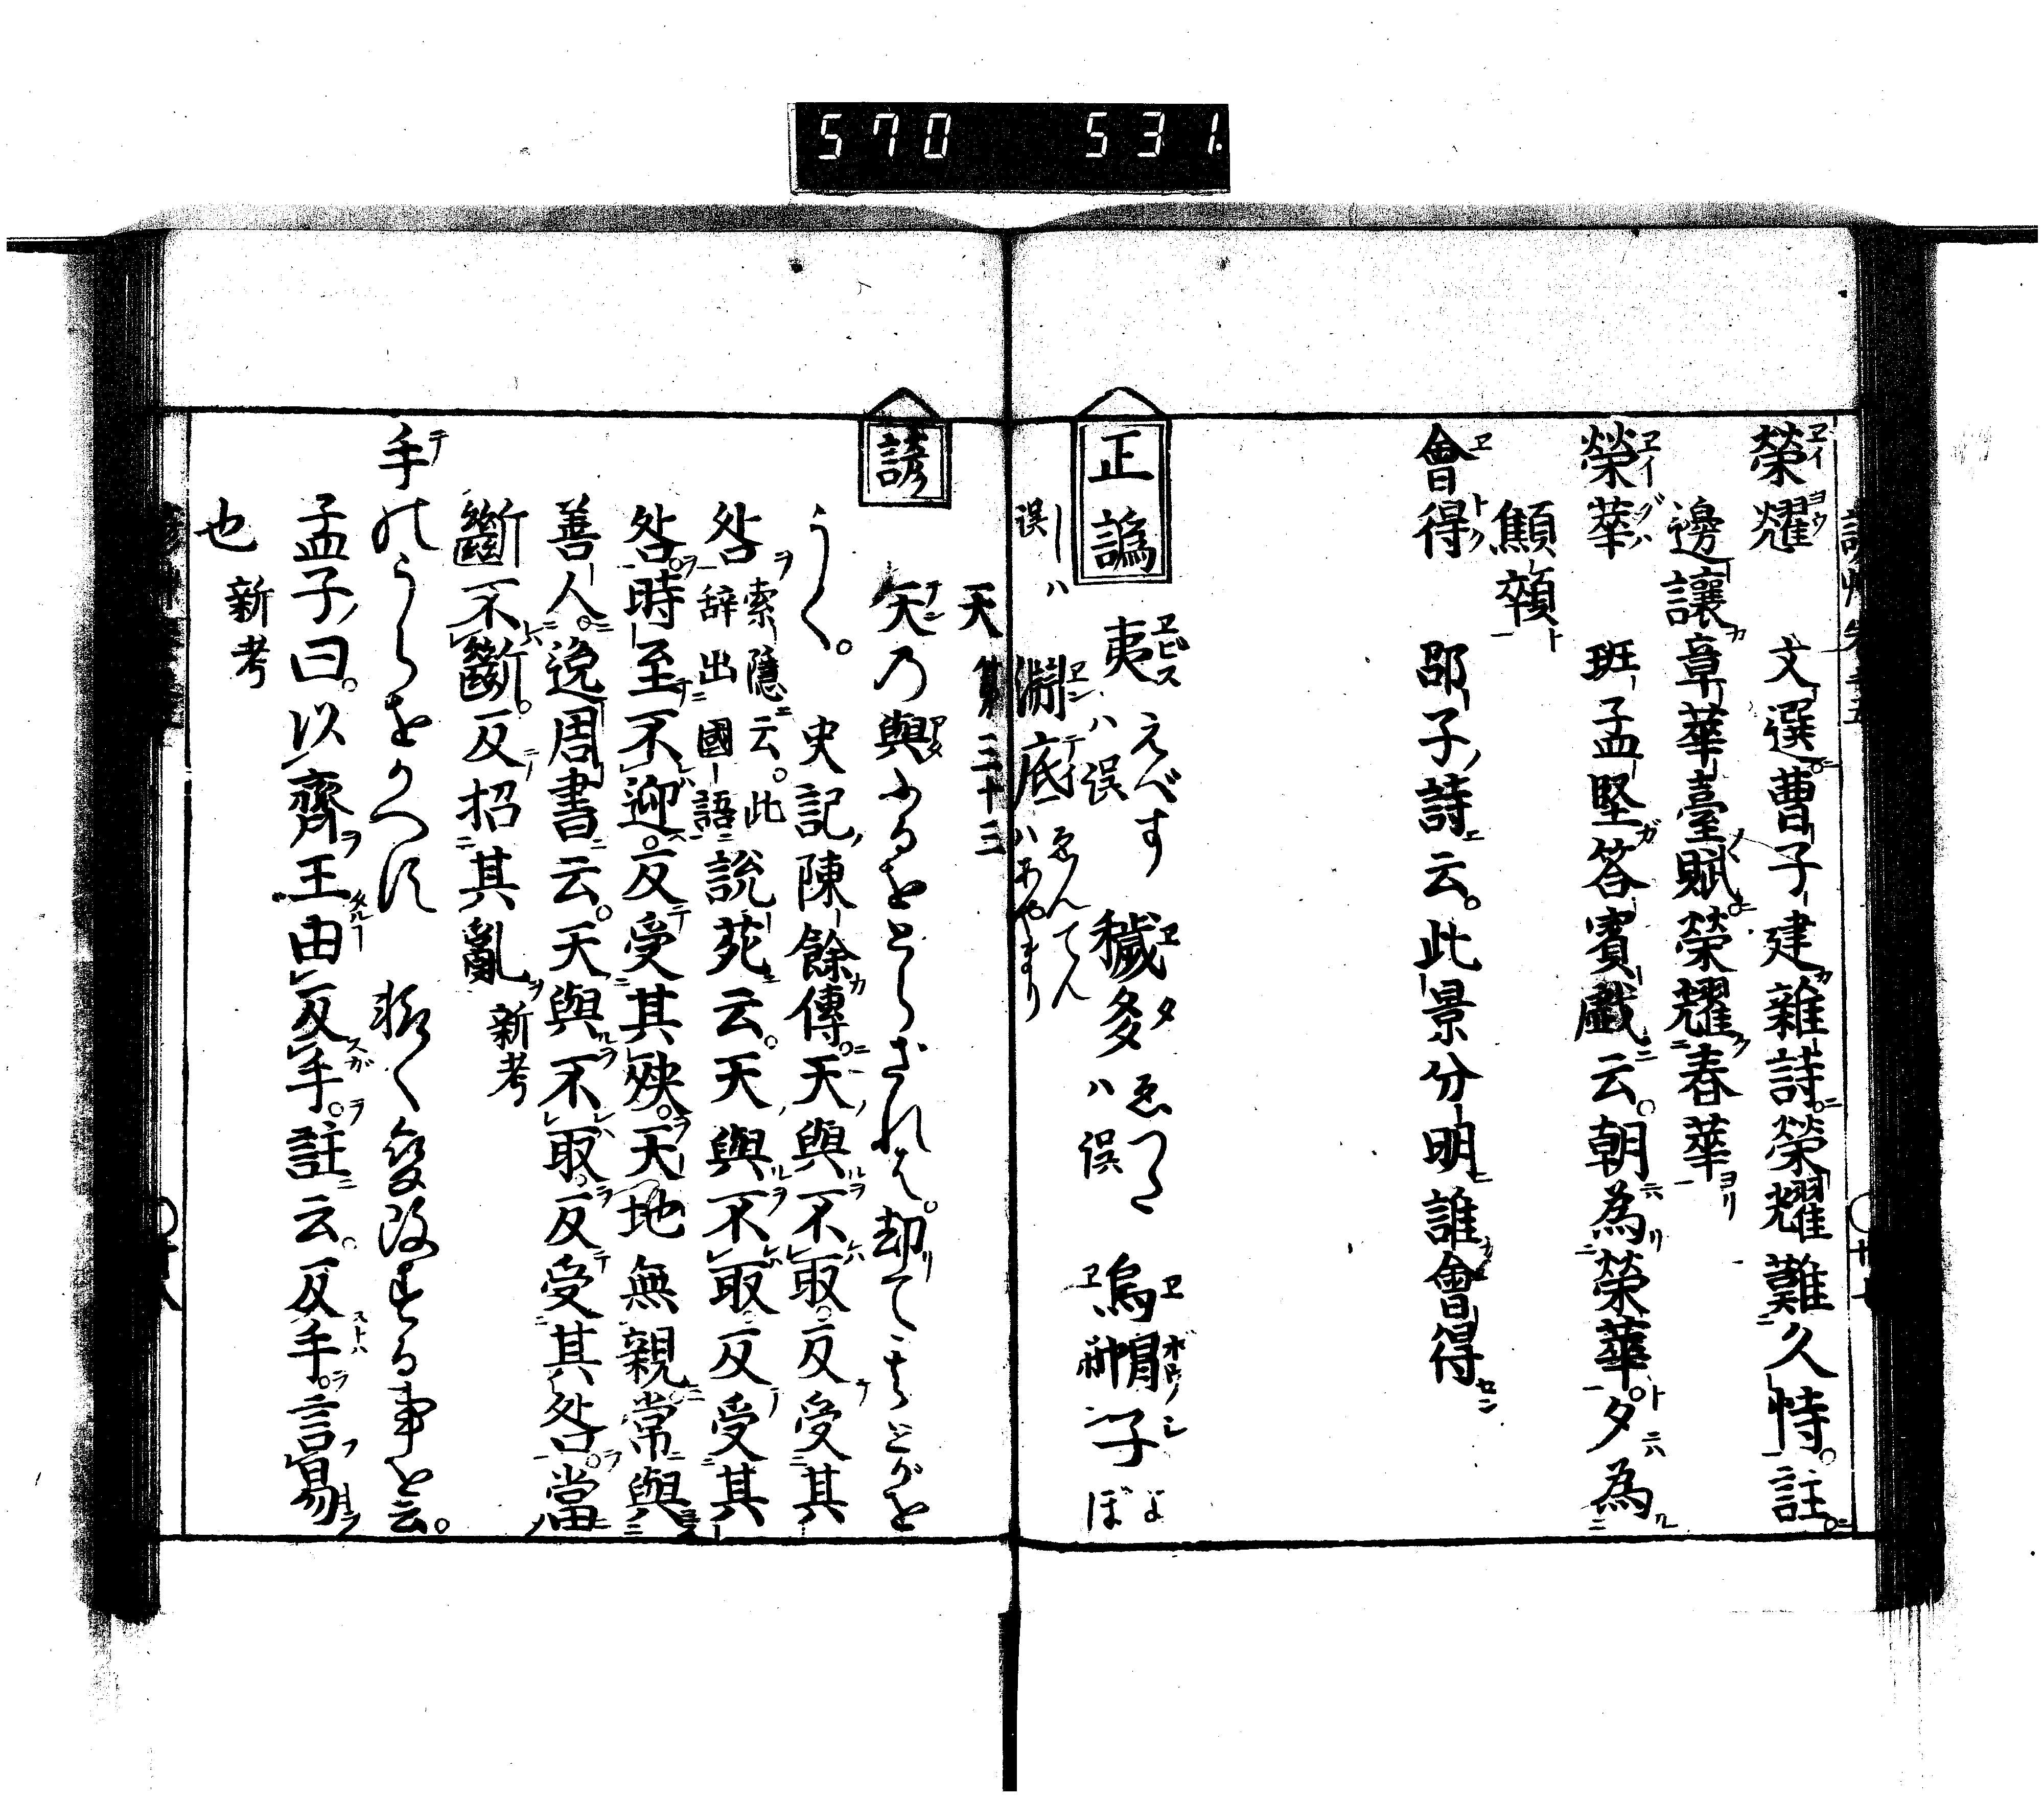 570 531.
榮耀 文選曹子建雜詩榮耀難久恃。註
邊讓章華臺賦榮耀春華
榮華 班孟堅答賓戲云。朝為榮華。夕為
顦顇
會得 邵子詩云。此景分明誰會得
正譌 夷 えべす ハ誤 穢多 ゑつた ハ誤 烏帽子 よぼ
しハ誤 淵底 ゑんてん ハあやまり
天 第三十三
諺 天乃與ふるをとらざれば。却て其とがを
うく。 史記陳餘傳。天與不取。反受其
咎 索隱云。此辞出國語 說苑云。天與不取。反受其
咎。時至不迎。反受其殃。天地無親常與
善人。逸周書云。天與不取。反受其咎。當
斷不斷。反招其亂 新考
手のうらをかへす 輕く変改する事を云。
孟子曰。以齊王由反手。註云。反手。言易
也 新考